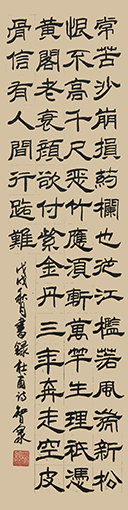 常苦沙崩損葯欄也從江檻落風湍新松
恨不高千尺惡竹應須斬萬竿生理祇憑
黃閣老衰顏欲付紫金丹三年奔走空皮
骨信有人間行路難
戊戌秋月書錄杜甫詩智